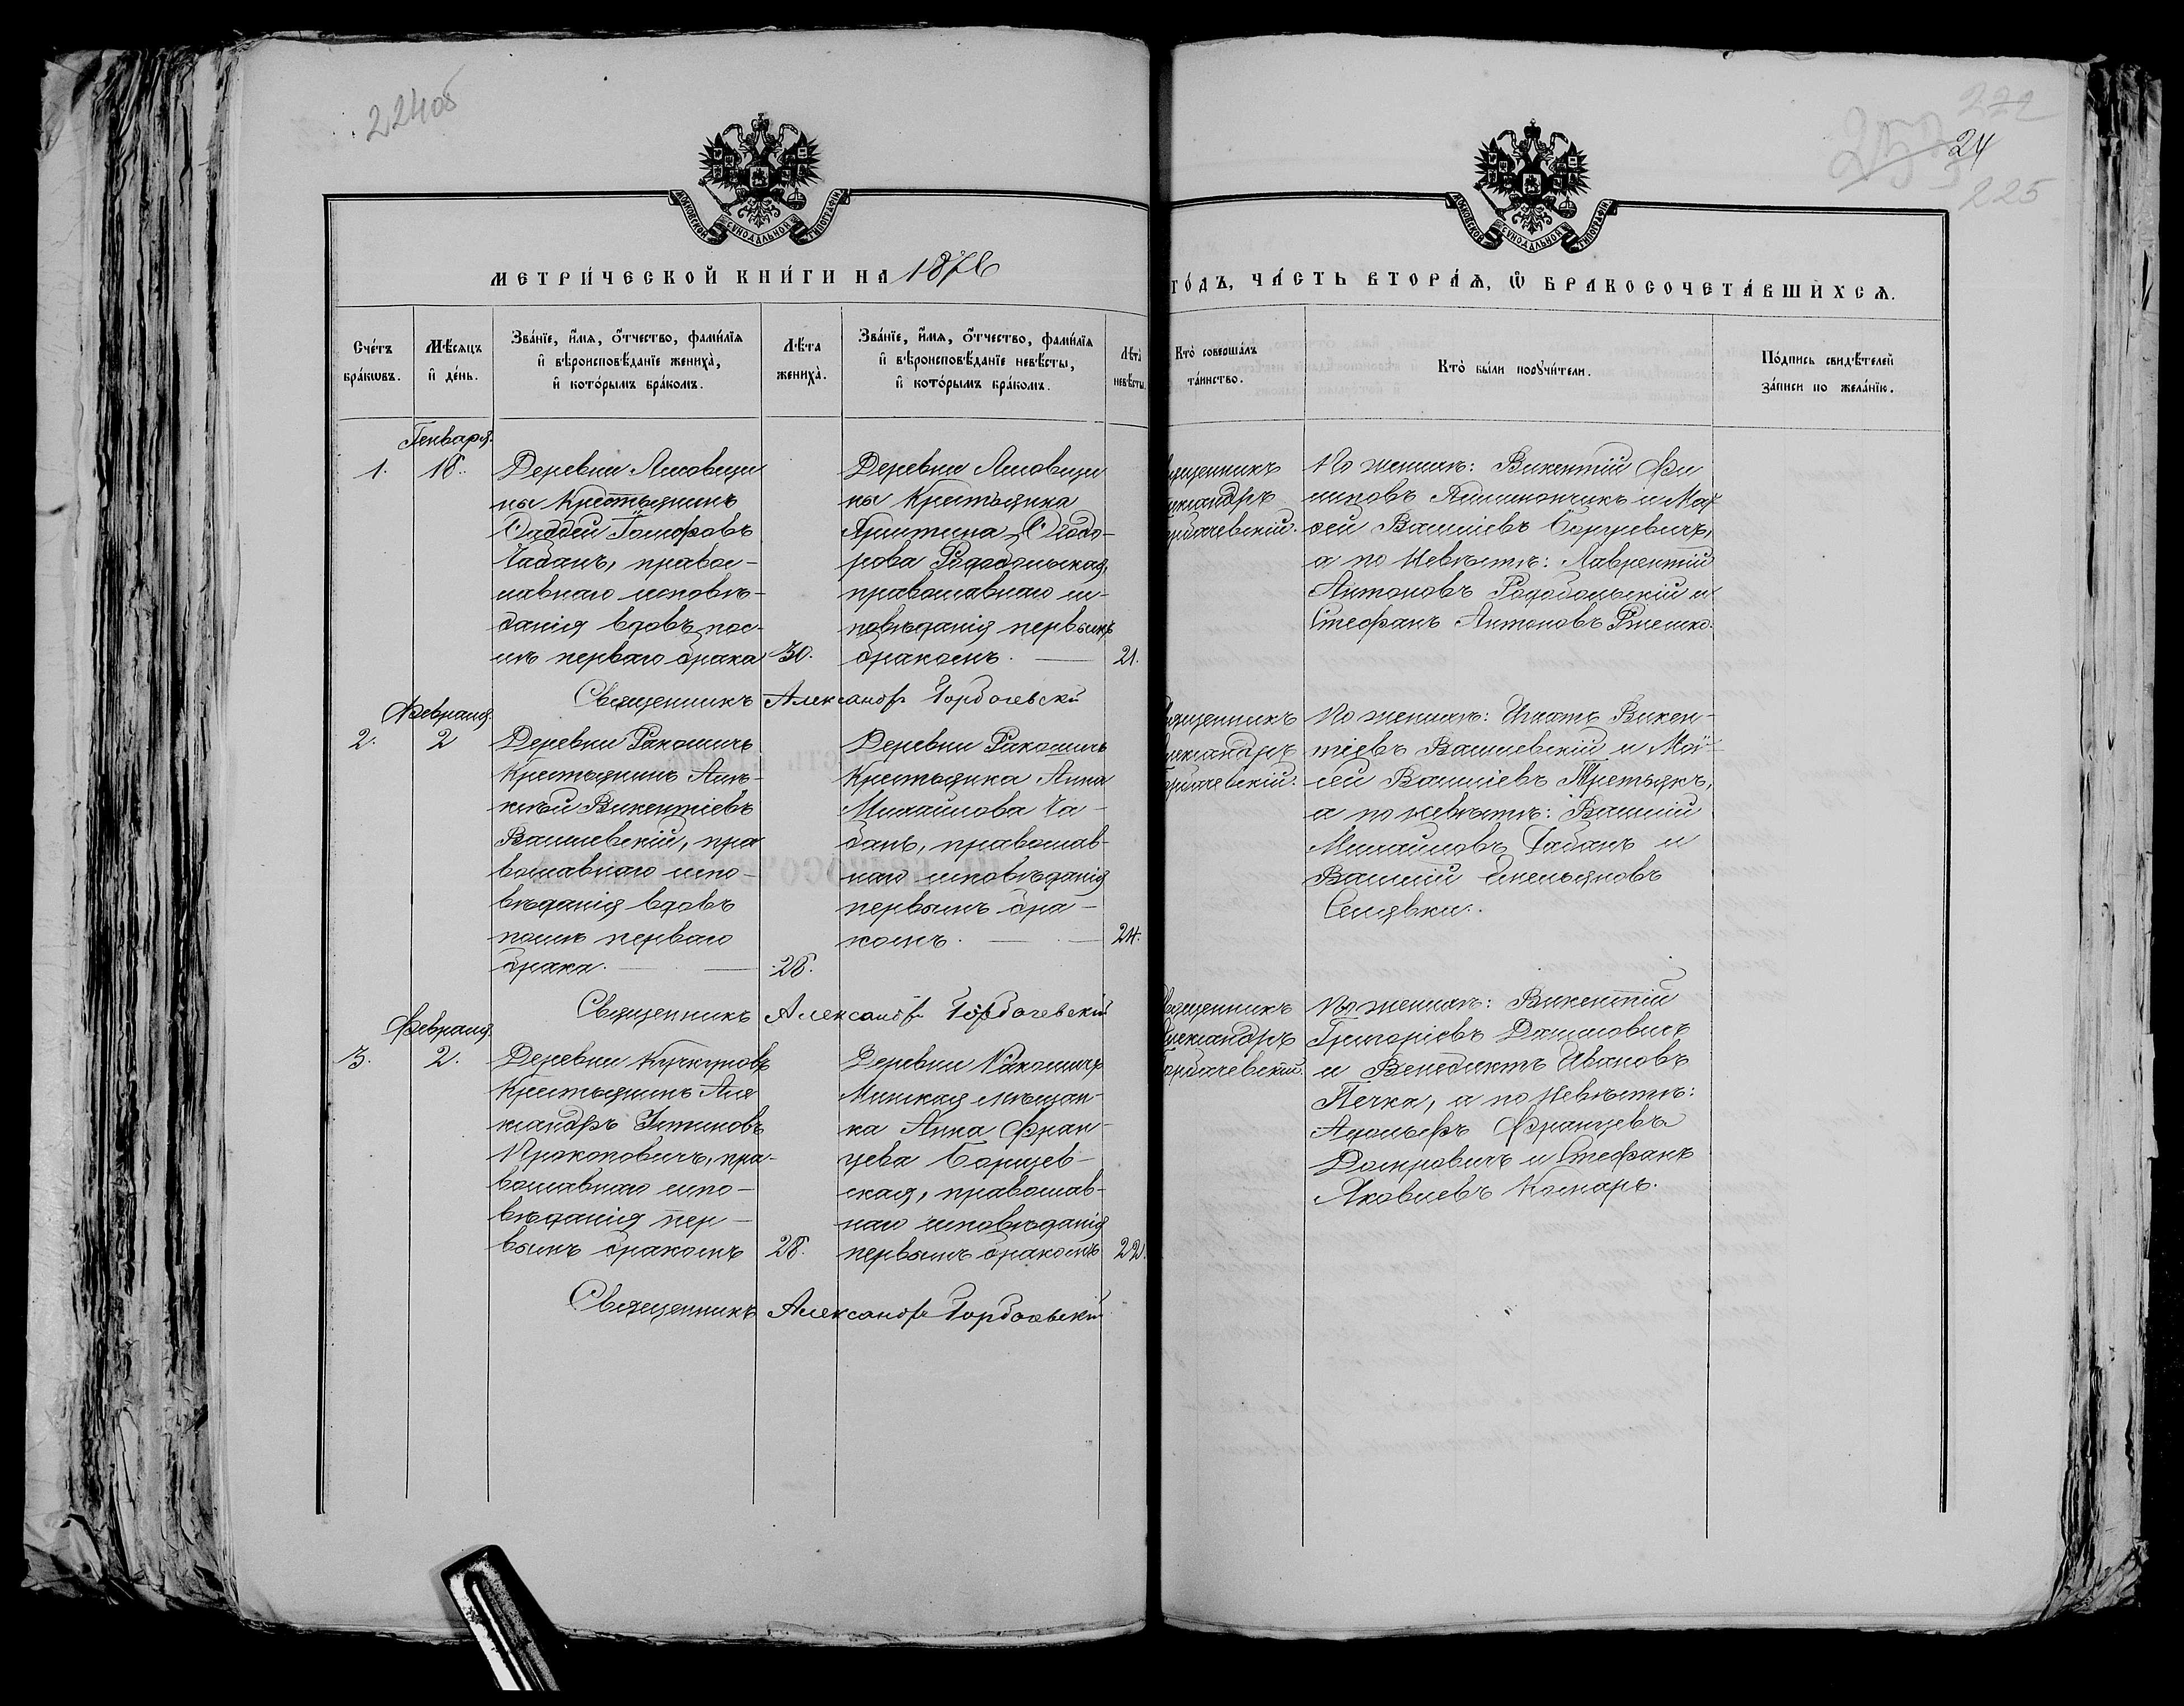 224об
24
225
МЕТРИ́ЧЕСКОЙ КНИ́ГИ НА 1876
ГО́ДЪ, ЧА́СТЬ ВТОРА́Ѧ, Ѽ БРАКОСОЧЕТА́ВШИХСѦ.
Сче́тъ бра́кѡвъ.
Мѣ́сѧцъ и҆ де́нь.
Зва́нїе, и҆́мѧ, ѻ҆́тчество, фами́лїѧ
и҆ вѣроисповѣ́данїе жениха̀,
и҆ кото́рымъ бра́комъ.
Лѣ́та жениха̀.
Зва́нїе, и҆́мѧ, ѻ҆́тчество, фами́лїѧ
и҆ вѣроисповѣ́данїе невѣ́сты,
и҆ кото́рымъ бра́комъ.
Лѣ́та невѣ́сты.
Кто̀ соверша́лъ
та́инство.
Кто̀ бы́ли порꙋчи́тели.
По́дпись свидѣ́телей
за́писи по жела́нїю.
Генваря.
1.
18.
Деревни Лисовщи
ны Крестьянинъ
Фаддей Іосифовъ
Чабанъ, правос-
лавнаго исповѣ-
данія вдовъ пос-
лѣ перваго брака
30.
Деревни Лисовщи
ны Крестьянка
Христина Ѳеодо-
рова Радобольская,
православнаго ис-
повѣданія первымъ
бракомъ.
21.
Священникъ
Александръ
Горбачевскій.
По женихѣ: Викентій Фи
липовъ Ясиминчикъ и Мой
сей Васильевъ Борусевичъ,
а по невѣстѣ: Лаврентій
Антоновъ Радобольскій и
Стефанъ Антоновъ
Священникъ Александръ Горбачевскій
Февраля.
2.
2
Деревни Ракошичъ
Крестьянинъ Алек-
сѣй Викентіевъ
Василевскій, пра
вославнаго испо-
вѣданія вдовъ
послѣ перваго
брака.
28.
Деревни Ракошичъ
Крестьянка Анна
Михайлова Ча-
банъ, православ-
наго исповѣданія
первымъ бра-
комъ.
24.
Священникъ
Александръ
Горбачевскій.
По женихѣ: Игнатъ Викен-
тіевъ Василевскій и Мой-
сей Васильевъ Третьякъ,
а по невѣстѣ: Василій
Михайловъ Чабанъ и
Василій Емельяновъ
Синявка.
Священникъ Александръ Горбачевскій
Февраля.
3.
2.
Деревни Кучкуновъ
Крестьянинъ Але
ксандръ Устиновъ
Прокоповичъ, пра-
вославнаго испо-
вѣданія пер-
вымъ бракомъ
28.
Деревни Ракошичъ
Минская мѣщан-
ка Анна Фран-
цева Борщев-
ская, православ-
наго исповѣданія
первымъ бракомъ
22.
Священникъ
Александръ
Горбачевскій.
По женихѣ: Викентій
Григоріевъ Даниловичъ
и Венедиктъ Ивановъ
Печка, а по невѣстѣ:
Адольфъ Францевъ
Домровичъ и Стефанъ
Яковлевъ Комаръ.
Священникъ Александръ Горбачевскій